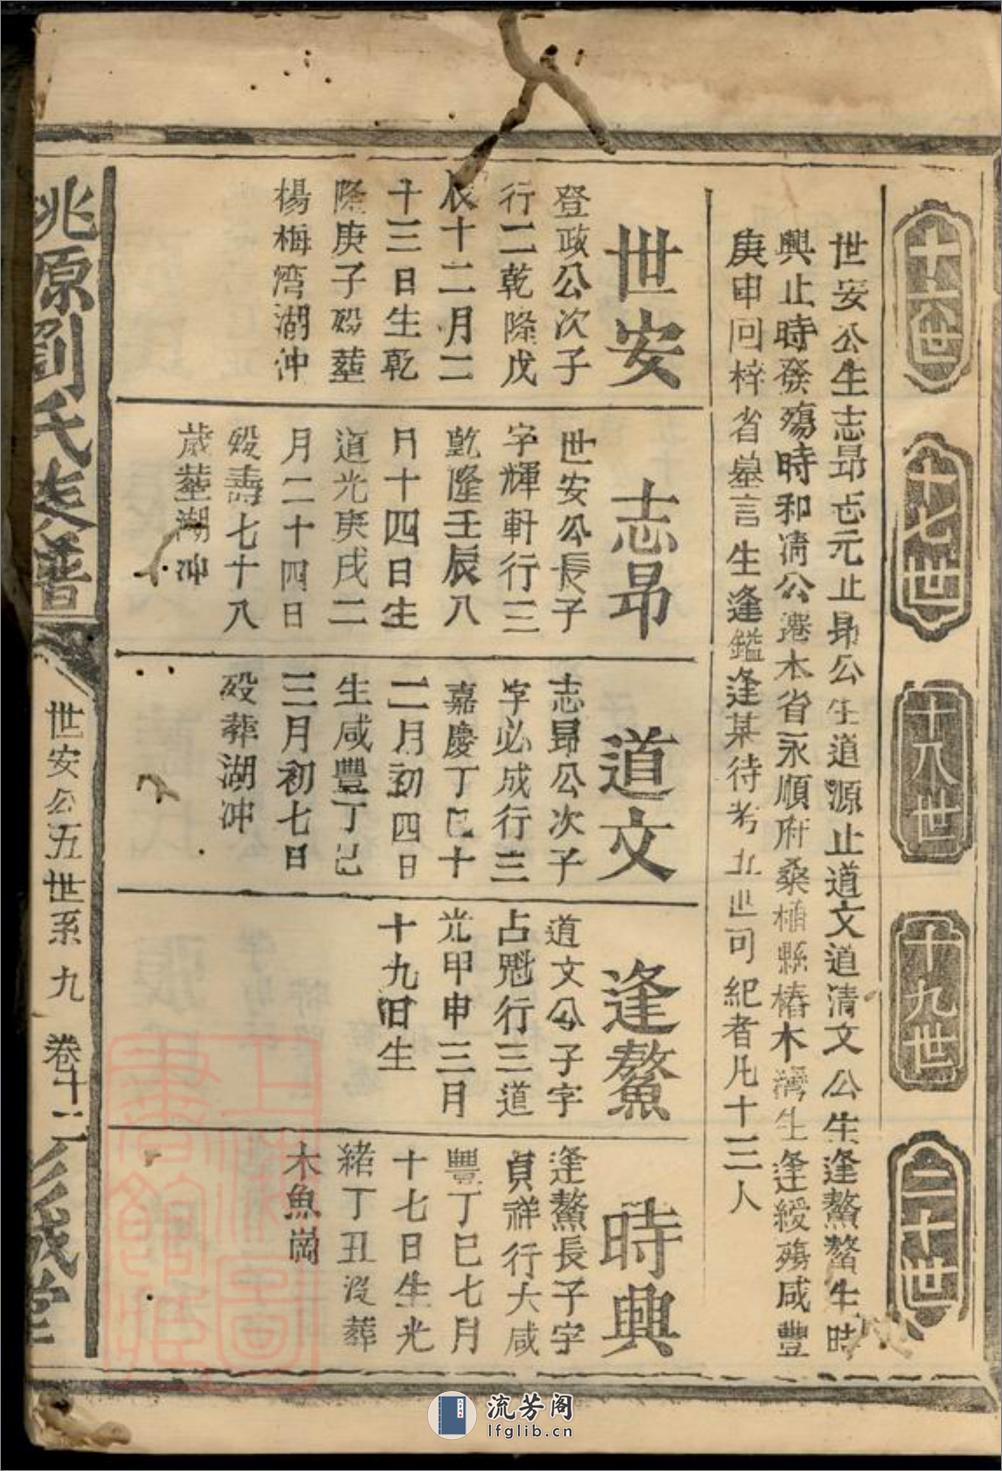 十六世
十七世
十八世
十九世
二十世
世安公生志昂志元止昂公生道源止道文道清文公生逢鰲鰲生時
興止時發殤時和清公港本省永順府桑植縣椿木灣生逢綬殤咸豐
庚申回梓省墓言生逢鑑逢某待考五世可紀者凡十三人
世安
登政公次子
行二乾隆戊
辰十二月二
十三日生乾
隆庚子歿塟
楊梅湾湖冲
志昂
世安公長子
字輝軒行三
乾隆壬辰八
月十四日生
道光庚戌二
月二十四日
歿壽七十八
歲塟湖冲
道文
志昂公次子
字必成行三
嘉慶丁巳十
二月初四日
生咸豐丁巳
三月初七日
歿葬湖冲
逢鰲
道文公子字
占魁行三道
光甲申三月
十九日生
時興
逢鰲長子字
貞祥行大咸
豐丁巳七月
十七日生光
緒丁丑没葬
木魚崗
桃源劉氏族譜
世安公五世系 九 卷十二
堂
流芳阁
lfglib.cn